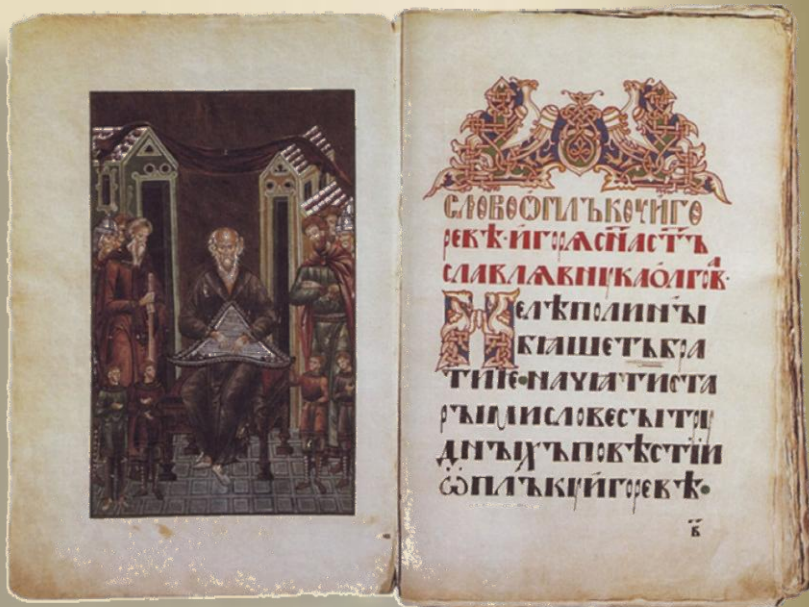 СЛОВО Ѿ ПЛЪКОУ ИГО
РЕВѢ · ИГОРѦ СН҃А СТ҃Ъ
СЛАВЛѦ ВНꙊКА ОЛГОВ ·
НЕ ЛѢПО ЛИ НЫ
БꙖШЕТЪ БРА
ТИѤ · НАЧꙖТИ СТА
РЫМИ СЛОВЕСЫ ТРꙊ
ДНЫХЪ ПОВѢСТІИ
Ѿ ПЛЪКꙊ ИГОРЕВѢ ·
В҃